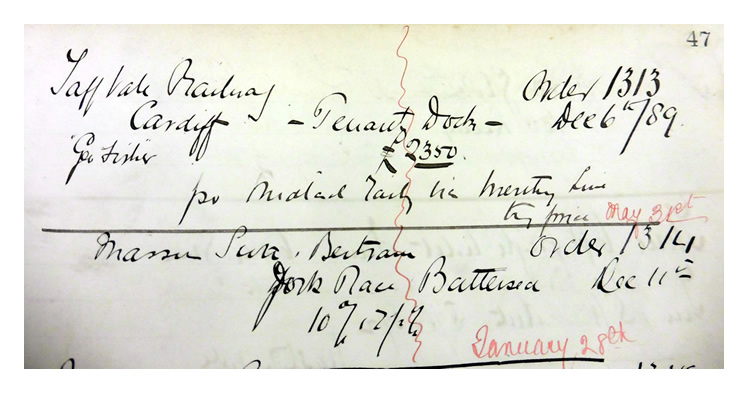 47
Taff Vale Railway Order 1313
Cardiff - Penarth Dock - Dec 6th/89.
Geo Fisher £2350.
per Midland Raily via Merthy line
try price May 31st
Messrs Bertram Order 1314
York Place Battersea Dec 11th
10
January 28th